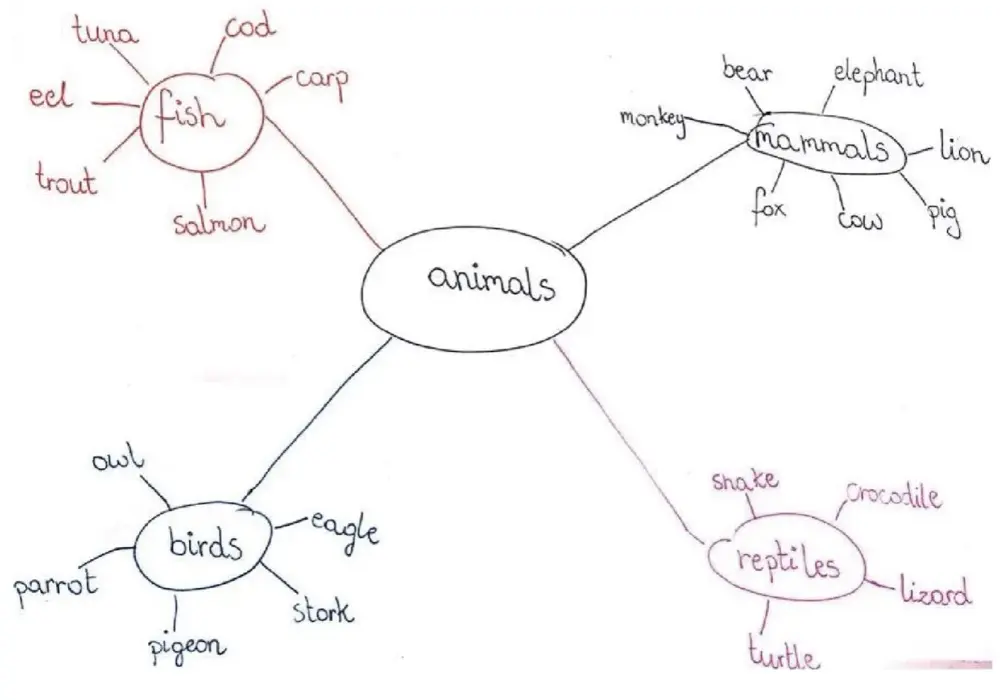 tuna
cod
carp
eel
fish
trout
salmon
bear
elephant
monkey
mammals
lion
fox
cow
pig
animals
owl
eagle
birds
parrot
stork
pigeon
snake
crocodile
reptiles
lizard
turtle